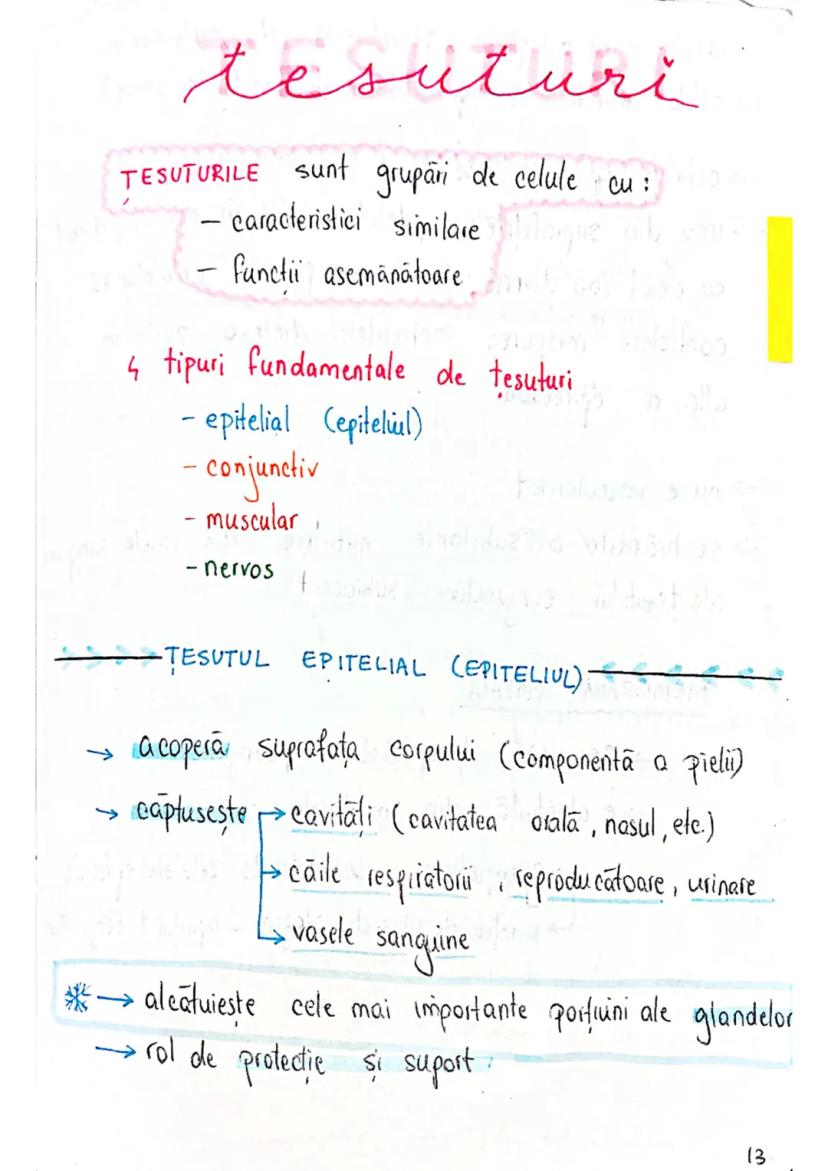 tesuturi
ȚESUTURILE sunt grupări de celule cu :
- caracteristici similare
- funcții asemănătoare
4 tipuri fundamentale de țesuturi
- epitelial (epiteliul)
- conjunctiv
- muscular
- nervos
ȚESUTUL EPITELIAL (EPITELIUL)
→ acoperă suprafața corpului (componentă a pielii)
→ căptusește → cavități (cavitatea orală, nasul, etc.)
→ căile respiratorii, reproducătoare, urinare
→ vasele sanguine
* → alcătuiește cele mai importante porțiuni ale glandelor
→ rol de protecție și suport
13